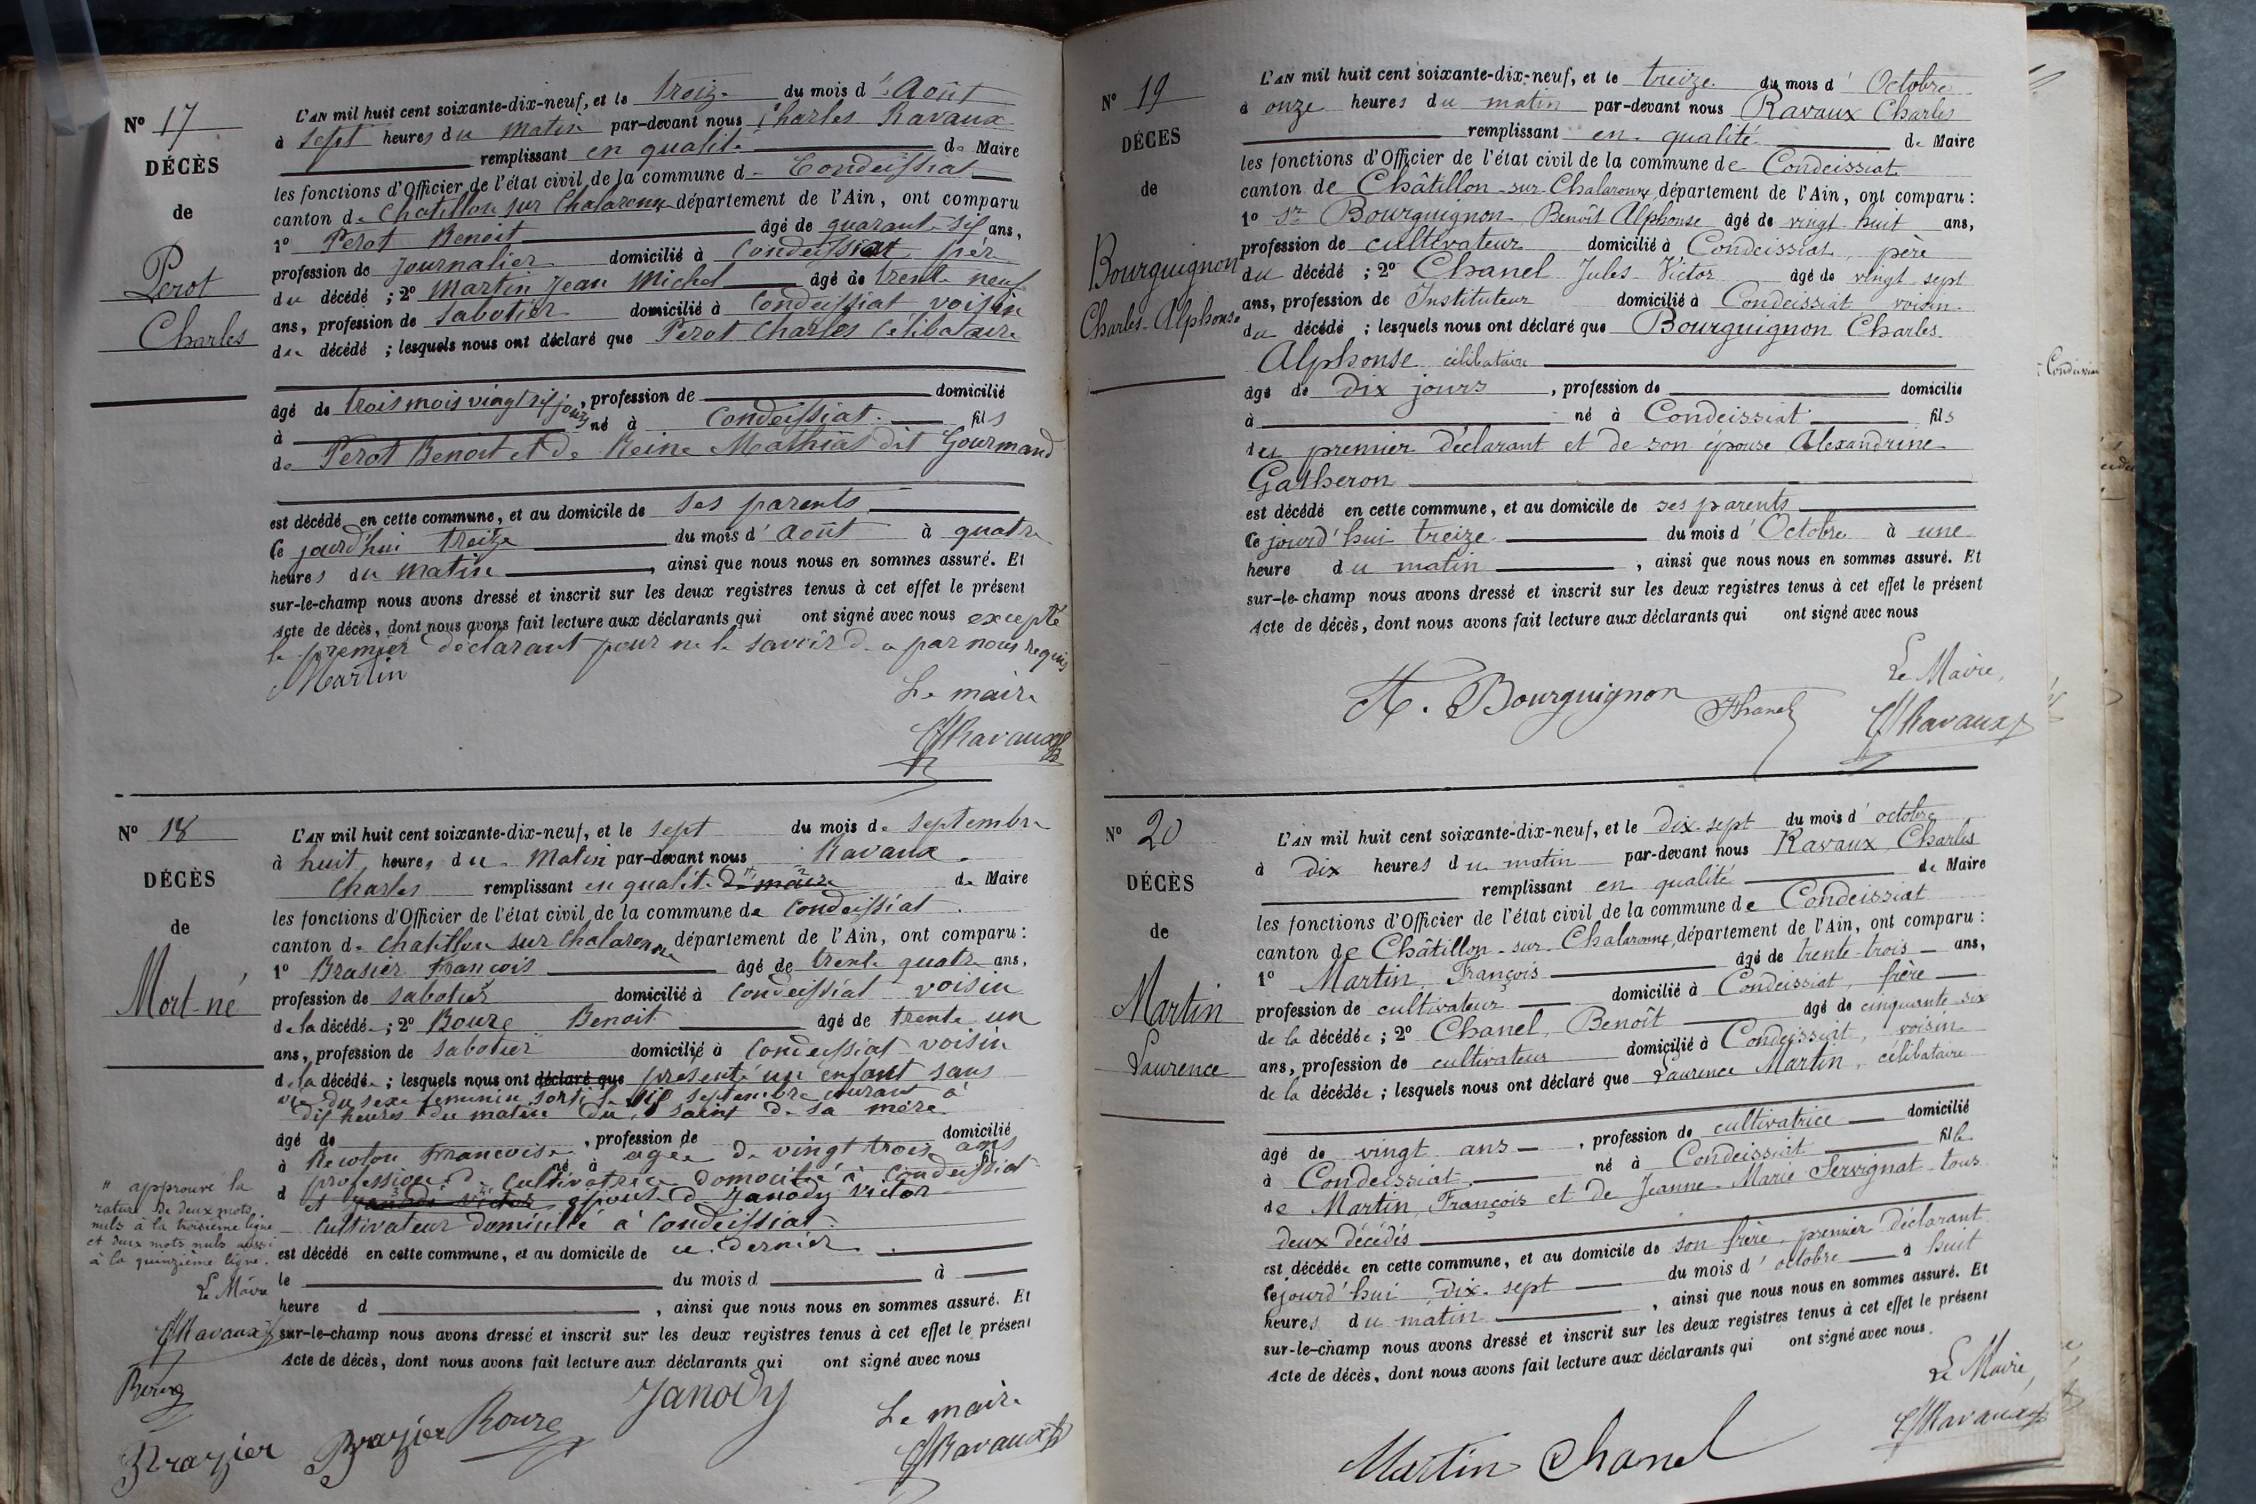 N° 17
DÉCÈS
de
Perot
Charles
L'AN mil huit cent soixante-dix-neuf, et le treize du mois d' Août
à sept heures du matin par-devant nous Charles Ravaux
remplissant en qualité de Maire
les fonctions d'Officier de l'état civil de la commune de Condeissiat
canton de Chatillon sur Chalaronne département de l'Ain, ont comparu
1° Perot Benoit âgé de quarante six ans,
profession de journalier domicilié à Condeissiat père
du décédé ; 2° Martin Jean Michel âgé de trente neuf
ans, profession de sabotier domicilié à Condeissiat voisin
du décédé ; lesquels nous ont déclaré que Perot Charles Célibataire
âgé de trois mois vingt six jours, profession de domicilié
à né à Condeissiat fils
de Perot Benoit et de Reine Mathias dit Gourmand
est décédé en cette commune, et au domicile de ses parents
Ce jourd'hui treize du mois d' août à quatre
heures du matin, ainsi que nous nous en sommes assuré. Et
sur-le-champ nous avons dressé et inscrit sur les deux registres tenus à cet effet le présent
Acte de décès, dont nous avons fait lecture aux déclarants qui ont signé avec nous excepté
le premier déclarant pour ne le savoir de ce par nous requis
Martin
Le maire
Ravaux
N° 18
DÉCÈS
de
Mort-né
L'AN mil huit cent soixante-dix-neuf, et le sept du mois de septembre
à huit heures du matin par-devant nous Ravaux
Charles remplissant en qualité de maire de Maire
les fonctions d'Officier de l'état civil de la commune de Condeissiat
canton de Chatillon sur Chalaronne département de l'Ain, ont comparu :
1° Brasier François âgé de trente quatre ans,
profession de sabotier domicilié à Condeissiat voisin
de la décédée ; 2° Bouze Benoit âgé de trente un
ans, profession de sabotier domicilié à Condeissiat voisin
de la décédée ; lesquels nous ont déclaré que presenté un enfant sans
vie du sexe feminin sorti le six septembre courant à
dix heures du matin du saint de sa mère
âgé de , profession de domicilié
à Francoise né à agée de vingt trois ans
fil
d profession de cultivatrice domicilié à Condeissiat
et Janody victor epouse de Janody Victor
cultivateur domicilié à Condeissiat.
est décédé en cette commune, et au domicile de ce dernier
le du mois d à
heure d , ainsi que nous nous en sommes assuré. Et
sur-le-champ nous avons dressé et inscrit sur les deux registres tenus à cet effet le présent
Acte de décès, dont nous avons fait lecture aux déclarants qui ont signé avec nous
" approuvé la
rature de deux mots
nuls à la troisième ligne
et deux mots nuls aussi
à la quinzième ligne.
Le Maire
Ravaux
Brazier Brazier Bouze Janody
Le maire
Ravaux
N° 19
DÉCÈS
de
Bourguignon
Charles-Alphonse
L'AN mil huit cent soixante-dix-neuf, et le treize du mois d' Octobre
à onze heures du matin par-devant nous Ravaux Charles
remplissant en qualité de Maire
les fonctions d'Officier de l'état civil de la commune de Condeissiat
canton de Châtillon-sur-Chalaronne, département de l'Ain, ont comparu :
1° Sr Bourguignon Benoît Alphonse âgé de vingt huit ans,
profession de cultivateur domicilié à Condeissiat, père
du décédé ; 2° Chanel Jules Victor âgé de vingt sept
ans, profession de Instituteur domicilié à Condeissiat, voisin
du décédé ; lesquels nous ont déclaré que Bourguignon Charles
Alphonse, célibataire
âgé de Dix jours, profession de domicilié
à né à Condeissiat fils
du premier déclarant et de son épouse Alexandrine
Gatheron
est décédé en cette commune, et au domicile de ses parents
Ce jourd'hui treize du mois d' Octobre à une
heure du matin, ainsi que nous nous en sommes assuré. Et
sur-le-champ nous avons dressé et inscrit sur les deux registres tenus à cet effet le présent
Acte de décès, dont nous avons fait lecture aux déclarants qui ont signé avec nous
A. Bourguignon Chanel
Le Maire,
Ravaux
N° 20
DÉCÈS
de
Martin
Laurence
L'AN mil huit cent soixante-dix-neuf, et le dix-sept du mois d' octobre
à dix heures du matin par-devant nous Ravaux Charles
remplissant en qualité de Maire
les fonctions d'Officier de l'état civil de la commune de Condeissiat
canton de Châtillon-sur-Chalaronne, département de l'Ain, ont comparu :
1° Martin, François âgé de trente-trois ans,
profession de cultivateur domicilié à Condeissiat, frère
de la décédée ; 2° Chanel, Benoît âgé de cinquante six
ans, profession de cultivateur domicilié à Condeissiat, voisin
de la décédée ; lesquels nous ont déclaré que Laurence Martin, célibataire
âgé de vingt ans, profession de cultivatrice domicilié
à Condeissiat, né à Condeissiat fille
de Martin, François et de Jeanne-Marie Servignat tous
deux décédés
est décédée en cette commune, et au domicile de son frère, premier déclarant
Ce jourd'hui dix-sept du mois d' octobre à huit
heures du matin, ainsi que nous nous en sommes assuré. Et
sur-le-champ nous avons dressé et inscrit sur les deux registres tenus à cet effet le présent
Acte de décès, dont nous avons fait lecture aux déclarants qui ont signé avec nous.
Martin Chanel
Le Maire,
Ravaux